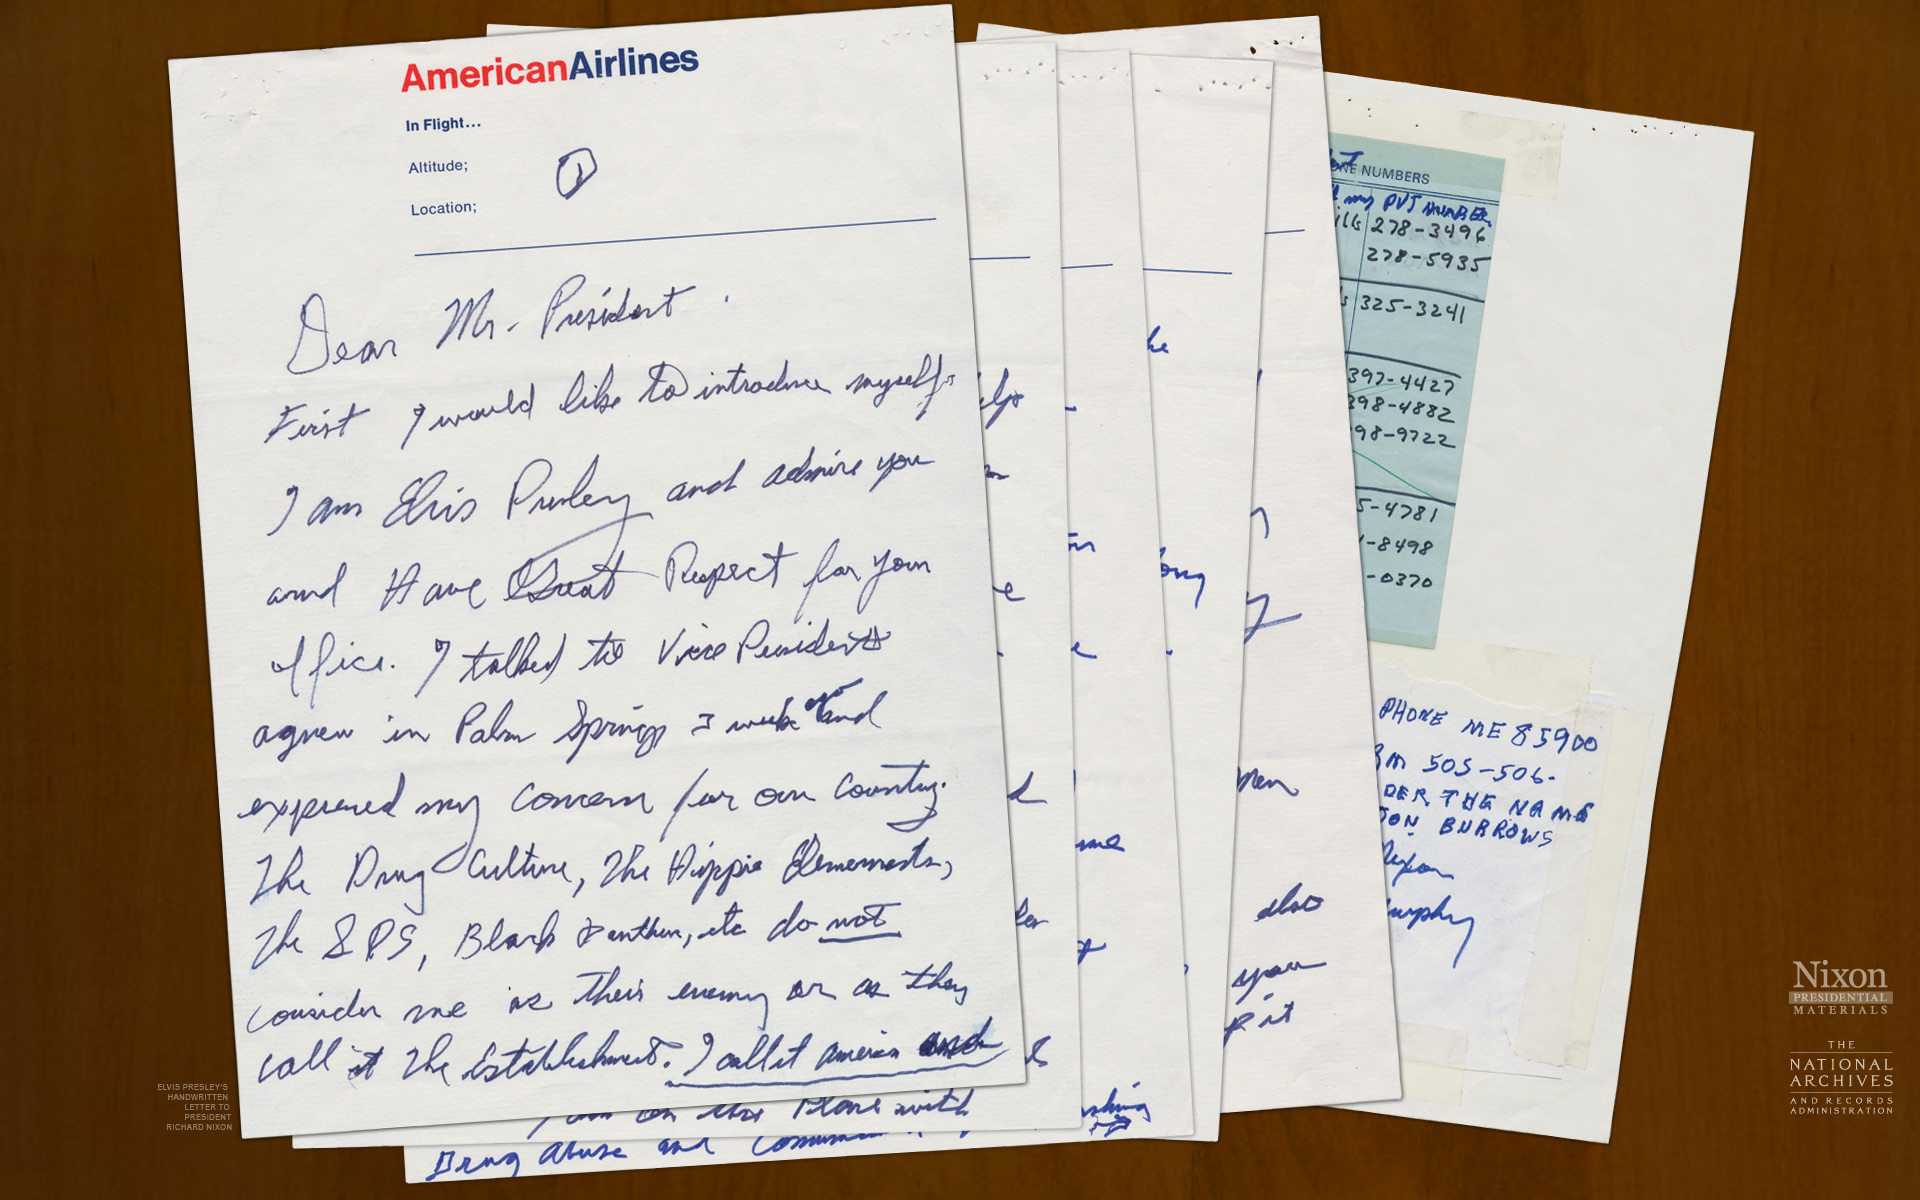 AmericanAirlines
In Flight...
Altitude;
Location;
1
Dear Mr. President.
First I would like to introduce myself.
I am Elvis Presley and admire you
and Have Great Respect for your
office. I talked to Vice President
agnew in Palm Springs 3 weeks and
expressed my concern for our country.
The Drug Culture, The Hippie Elements,
The SDS, Black Panthers, etc do not
consider me as their enemy or as they
call it The Establishment. I call it america and
I am on the Plane with
Drug Abuse and
he
me
men
also
you
it
PHONE NUMBERS
my PVT NUMBER
278-3496
278-5935
325-3241
397-4427
398-4882
98-9722
5-4781
-8498
-0370
PHONE ME 85900
RM 505-506.
DER THE NAME
JON BURROWS
ELVIS PRESLEY'S
HANDWRITTEN
LETTER TO
PRESIDENT
RICHARD NIXON
Nixon
PRESIDENTIAL
MATERIALS
THE
NATIONAL
ARCHIVES
AND RECORDS
ADMINISTRATION